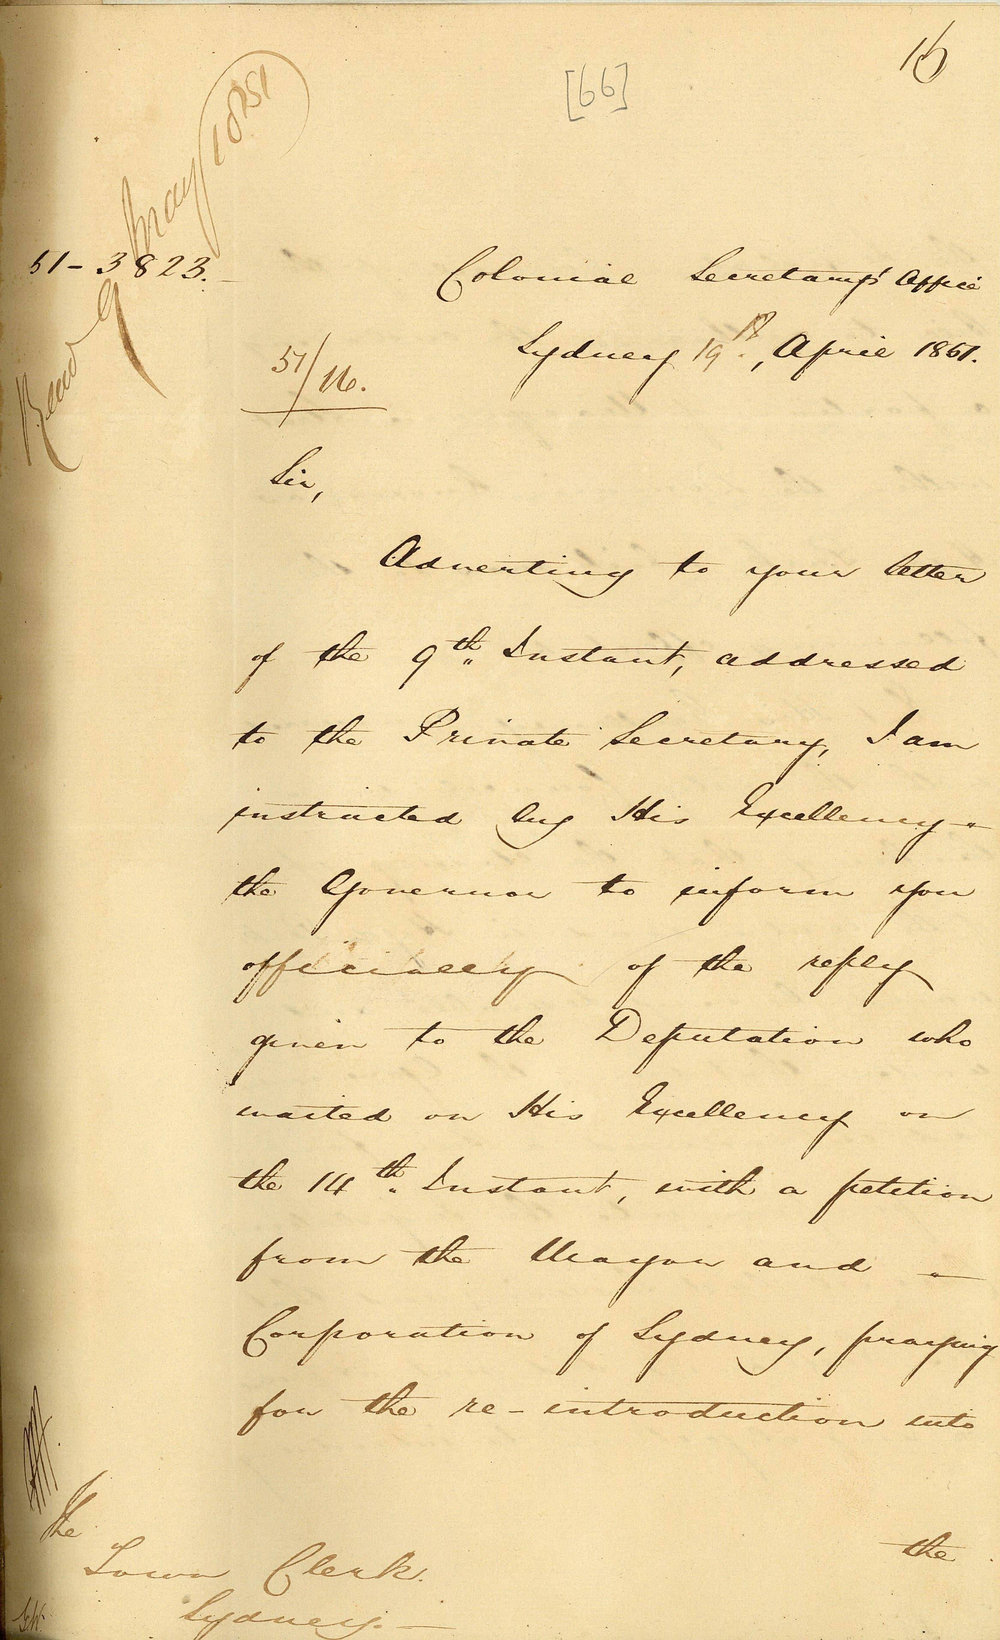 16
[66]
51-3823.
Recd 9 May 1851
Colonial Secretary's Office
Sydney 19th, April 1851.
51/16.
Sir,
Adverting to your letter
of the 9th. Instant, addressed
to the Private Secretary, I am
instructed by His Excellency
the Governor to inform you
officially of the reply
given to the Deputation who
waited on His Excellency on
the 14th. Instant, with a petition
from the Mayor and
Corporation of Sydney, praying
for the re-introduction into
the
The
Town Clerk.
Sydney.